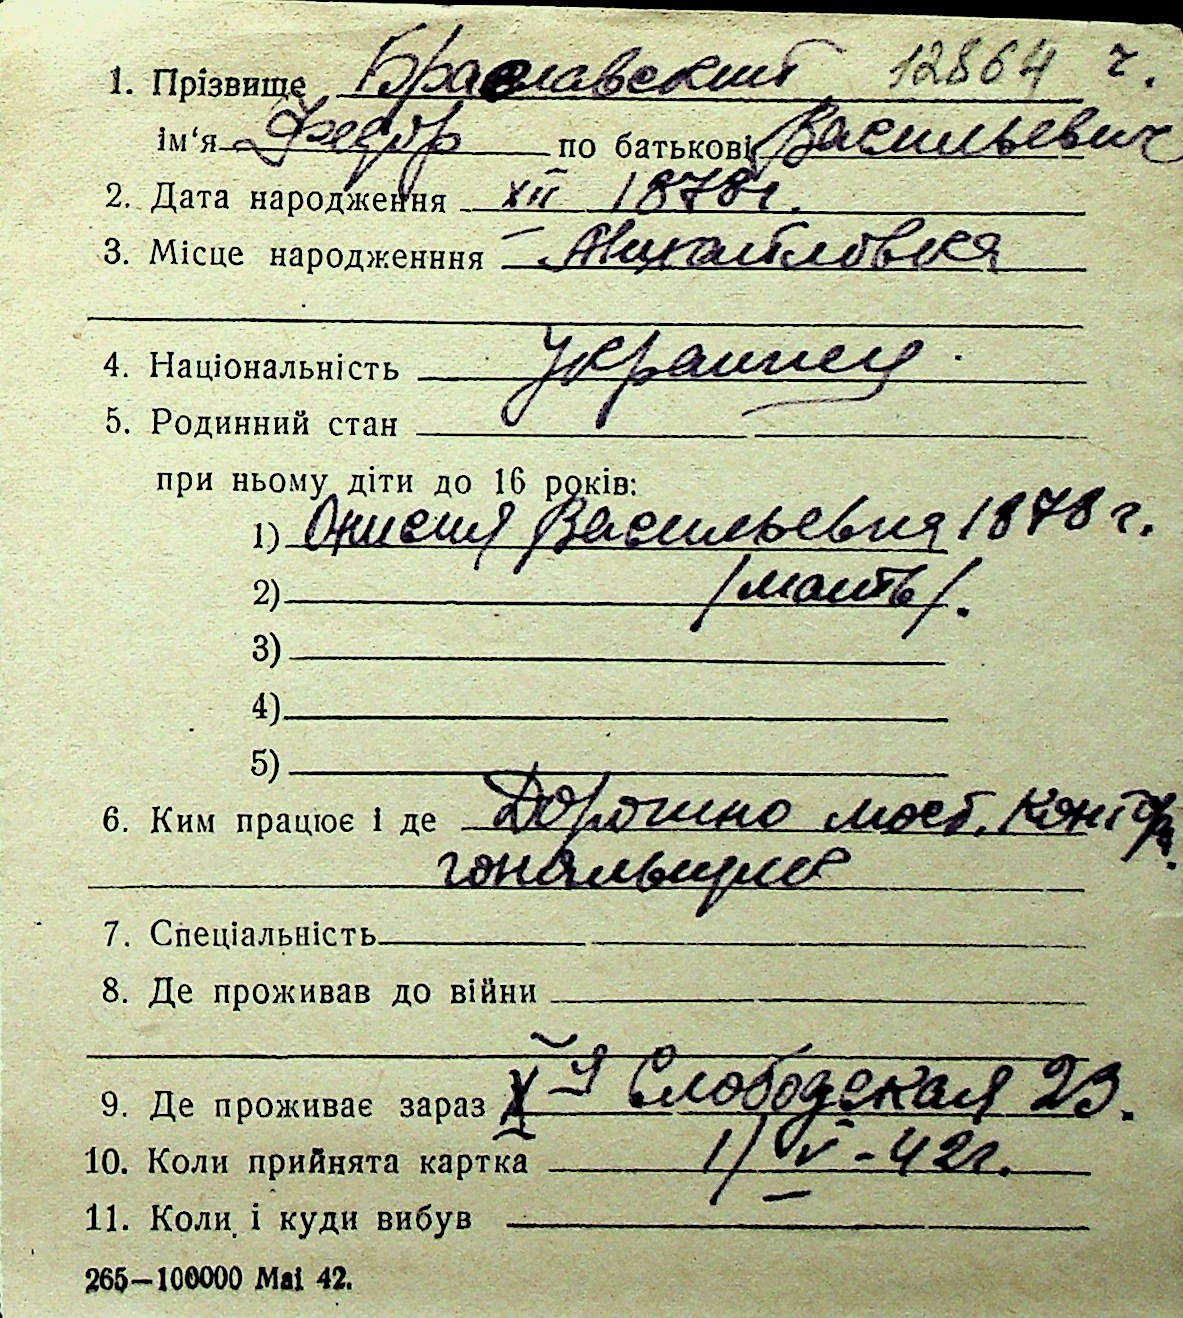 1. Прізвище Браславский 12864 ч.
ім‘я Федор по батькові Васильевич
2. Дата народження XII 1878г.
3. Місце народженння Михайловка
4. Національність Украинец
5. Родинний стан
при ньому діти до 16 років:
1) Анисия Васильевна 1878 г.
2) /мать/.
3)
4)
5)
6. Ким працює і де Дорожно мост. Контор.
7. Спеціальність
8. Де проживав до війни
9. Де проживає зараз X-я Слободская 23.
10. Коли прийнята картка 1/V-42г.
11. Коли і куди вибув
265—100000 Mai 42.